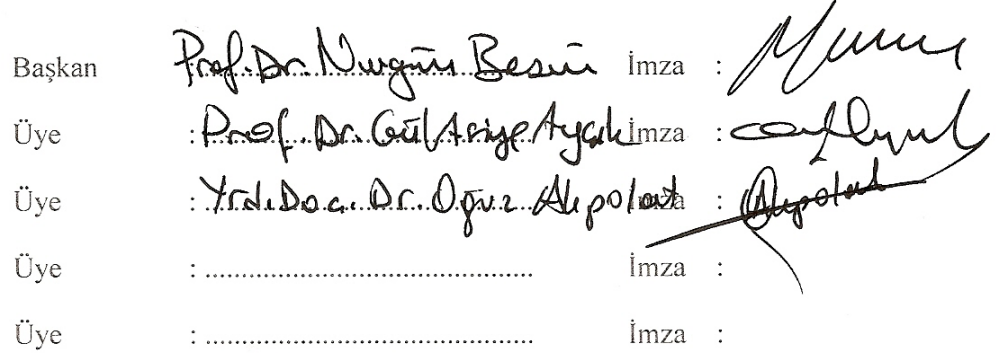 Başkan Prof. Dr. Nurgün Besin İmza :
Üye : Prof. Dr. Gül Asiye Ayçık İmza :
Üye : Yrd. Doc. Dr. Oğuz Akpolat İmza : Akpolat
Üye : .............................................. İmza :
Üye : .............................................. İmza :